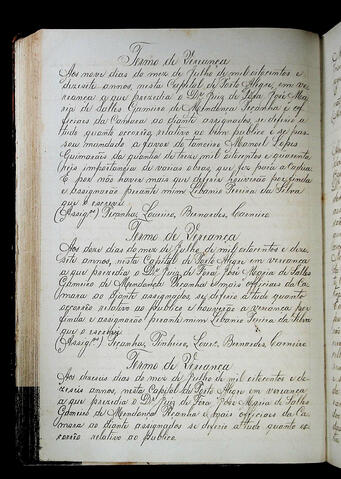 Termo de Vereança
Aos nove dias do mez de Julho de mil oitocentos e
dezesete annos, nesta Capital de Porto Alegre, em ve-
reança a que prezidia o Dr. Juiz de Fóra José Ma-
ria de Salles Gameiro de Mendonça Peçanha e of-
ficiaes da Camara ao diante assignados, se deferio a
tudo quanto occorrêo relativo ao bem publico e se pas-
sou mandado a favor do tanoeiro Manoel Lopes
Guimarães da quantia de treze mil oitocentos e quarenta
reis importancia de varias obras, que fez para a
E por não haver mais que differir houverão por finda
e assignarão perante mim Libanio Pereira da Silva
que o escrevi.
(Assigos) Peçanha, Loureiro, Bernardes, Carneiro.
Termo de Vereança
Aos doze dias do mez de Julho de mil oitocentos e deze-
sete annos, nesta Capital de Porto Alegre em vereança
a que prezidia o Dr. Juiz de Fóra José Maria de Salles
Gameiro de Mendonça Peçanha e mais officiaes da Ca-
mara ao diante assignados, se deferio a tudo quanto
occorrêo relativo ao publico e houverão a vereança por
finda e assignarão perante mim Libanio Pereira da Silva
que o escrevi.
(Assigos) Peçanha, Pinheiro, Lour., Bernardes, Carneiro
Termo de Vereança
Aos dezeseis dias do mez de Julho de mil oitocentos e
dezeseis annos, nesta Capital de Porto Alegre em vereança
a que prezidia o Dr. Juiz de Fóra José Maria de Salles
Gameiro de Mendonça Peçanha e mais officiaes da Ca-
mara ao diante assignados se deferio a tudo quanto oc-
corrêo relativo ao publico.